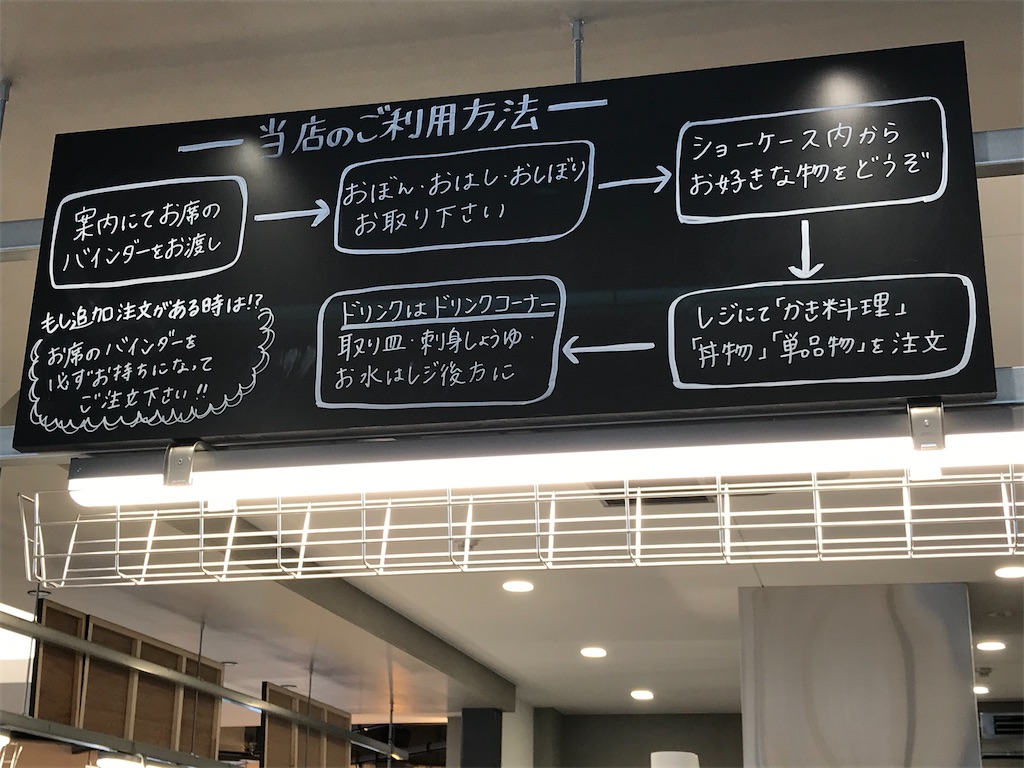 当店のご利用方法
案内にてお席の
バインダーをお渡し
おぼん・おはし・おしぼり
お取り下さい
ショーケース内から
お好きな物をどうぞ
レジにて「かき料理」
「丼物」「単品物」を注文
ドリンクはドリンクコーナー
取り皿・刺身しょうゆ・
お水はレジ後方に
もし追加注文がある時は!?
お席のバインダーを
必ずお持ちになって
ご注文下さい!!